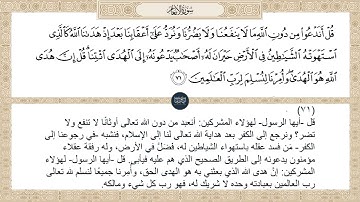 سورة الأنعام
قُلْ أَنَدْعُوا۟ مِن دُونِ ٱللَّهِ مَا لَا يَنفَعُنَا وَلَا يَضُرُّنَا وَنُرَدُّ عَلَىٰٓ أَعْقَابِنَا بَعْدَ إِذْ هَدَىٰنَا ٱللَّهُ كَٱلَّذِى
ٱسْتَهْوَتْهُ ٱلشَّيَٰطِينُ فِى ٱلْأَرْضِ حَيْرَانَ لَهُۥٓ أَصْحَٰبٌ يَدْعُونَهُۥٓ إِلَى ٱلْهُدَى ٱئْتِنَا ۗ قُلْ إِنَّ هُدَى
ٱللَّهِ هُوَ ٱلْهُدَىٰ ۖ وَأُمِرْنَا لِنُسْلِمَ لِرَبِّ ٱلْعَٰلَمِينَ ٧١
(٧١)
قل -أيها الرسول- لهؤلاء المشركين: أنعبد من دون الله تعالى أوثانًا لا تنفع ولا
تضر؟ ونرجع إلى الكفر بعد هداية الله تعالى لنا إلى الإسلام، فنشبه -في رجوعنا إلى
الكفر- مَن فسد عقله باستهواء الشياطين له، فضَلَّ في الأرض، وله رفقة عقلاء
مؤمنون يدعونه إلى الطريق الصحيح الذي هم عليه فيأبى. قل -أيها الرسول- لهؤلاء
المشركين: إنَّ هدى الله الذي بعثني به هو الهدى الحق، وأُمِرنا جميعًا لنسلم لله تعالى
رب العالمين بعبادته وحده لا شريك له، فهو رب كل شيء ومالكه.